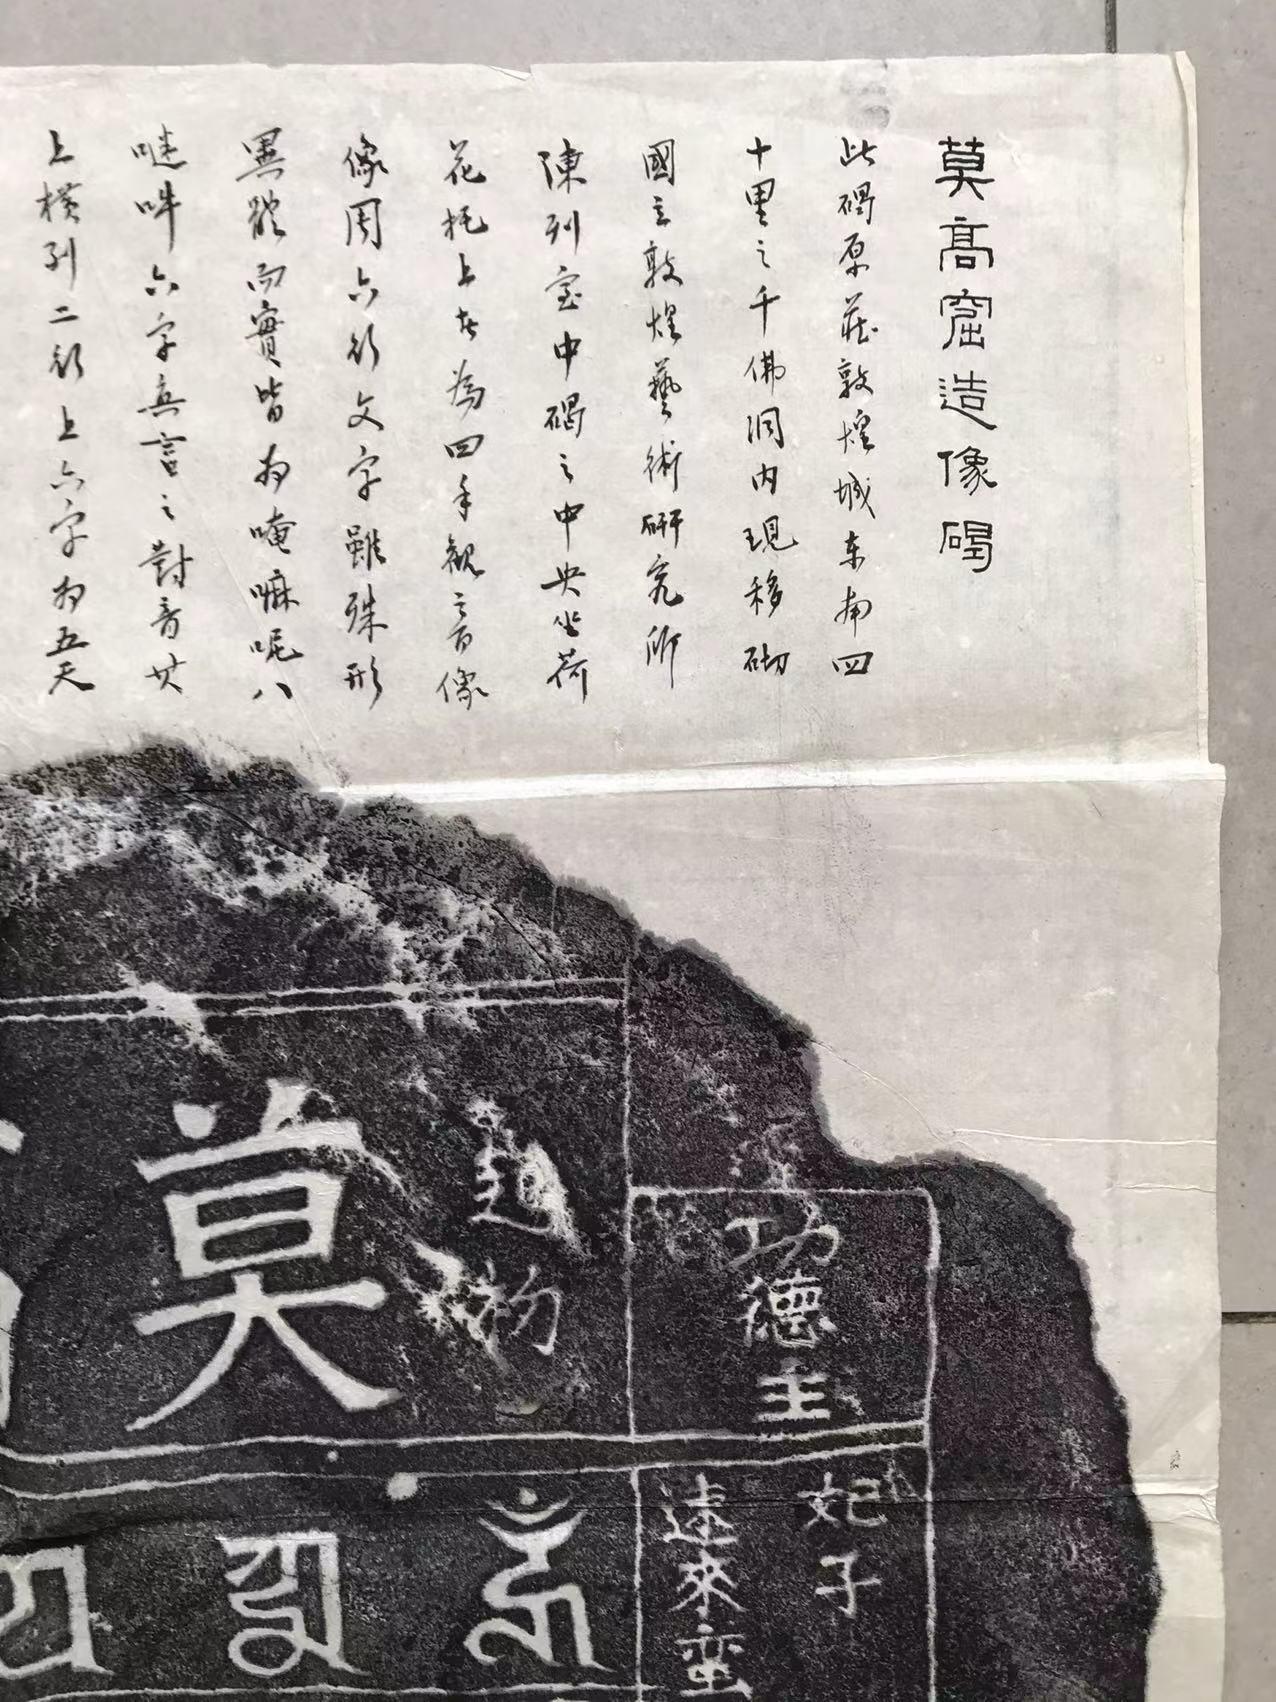 莫高窟造像碣
此碣原藏敦煌城东南四
十里之千佛洞内現移砌
國立敦煌藝術研究所
陳列室中碣之中央坐荷
花托上者為四手觀音像
像周六行文字雖殊形
異體而實皆为唵嘛呢八
嗹吽六字真言之對音其
上横列二行上六字为五天
功德主
妃子
速來蛮
莫